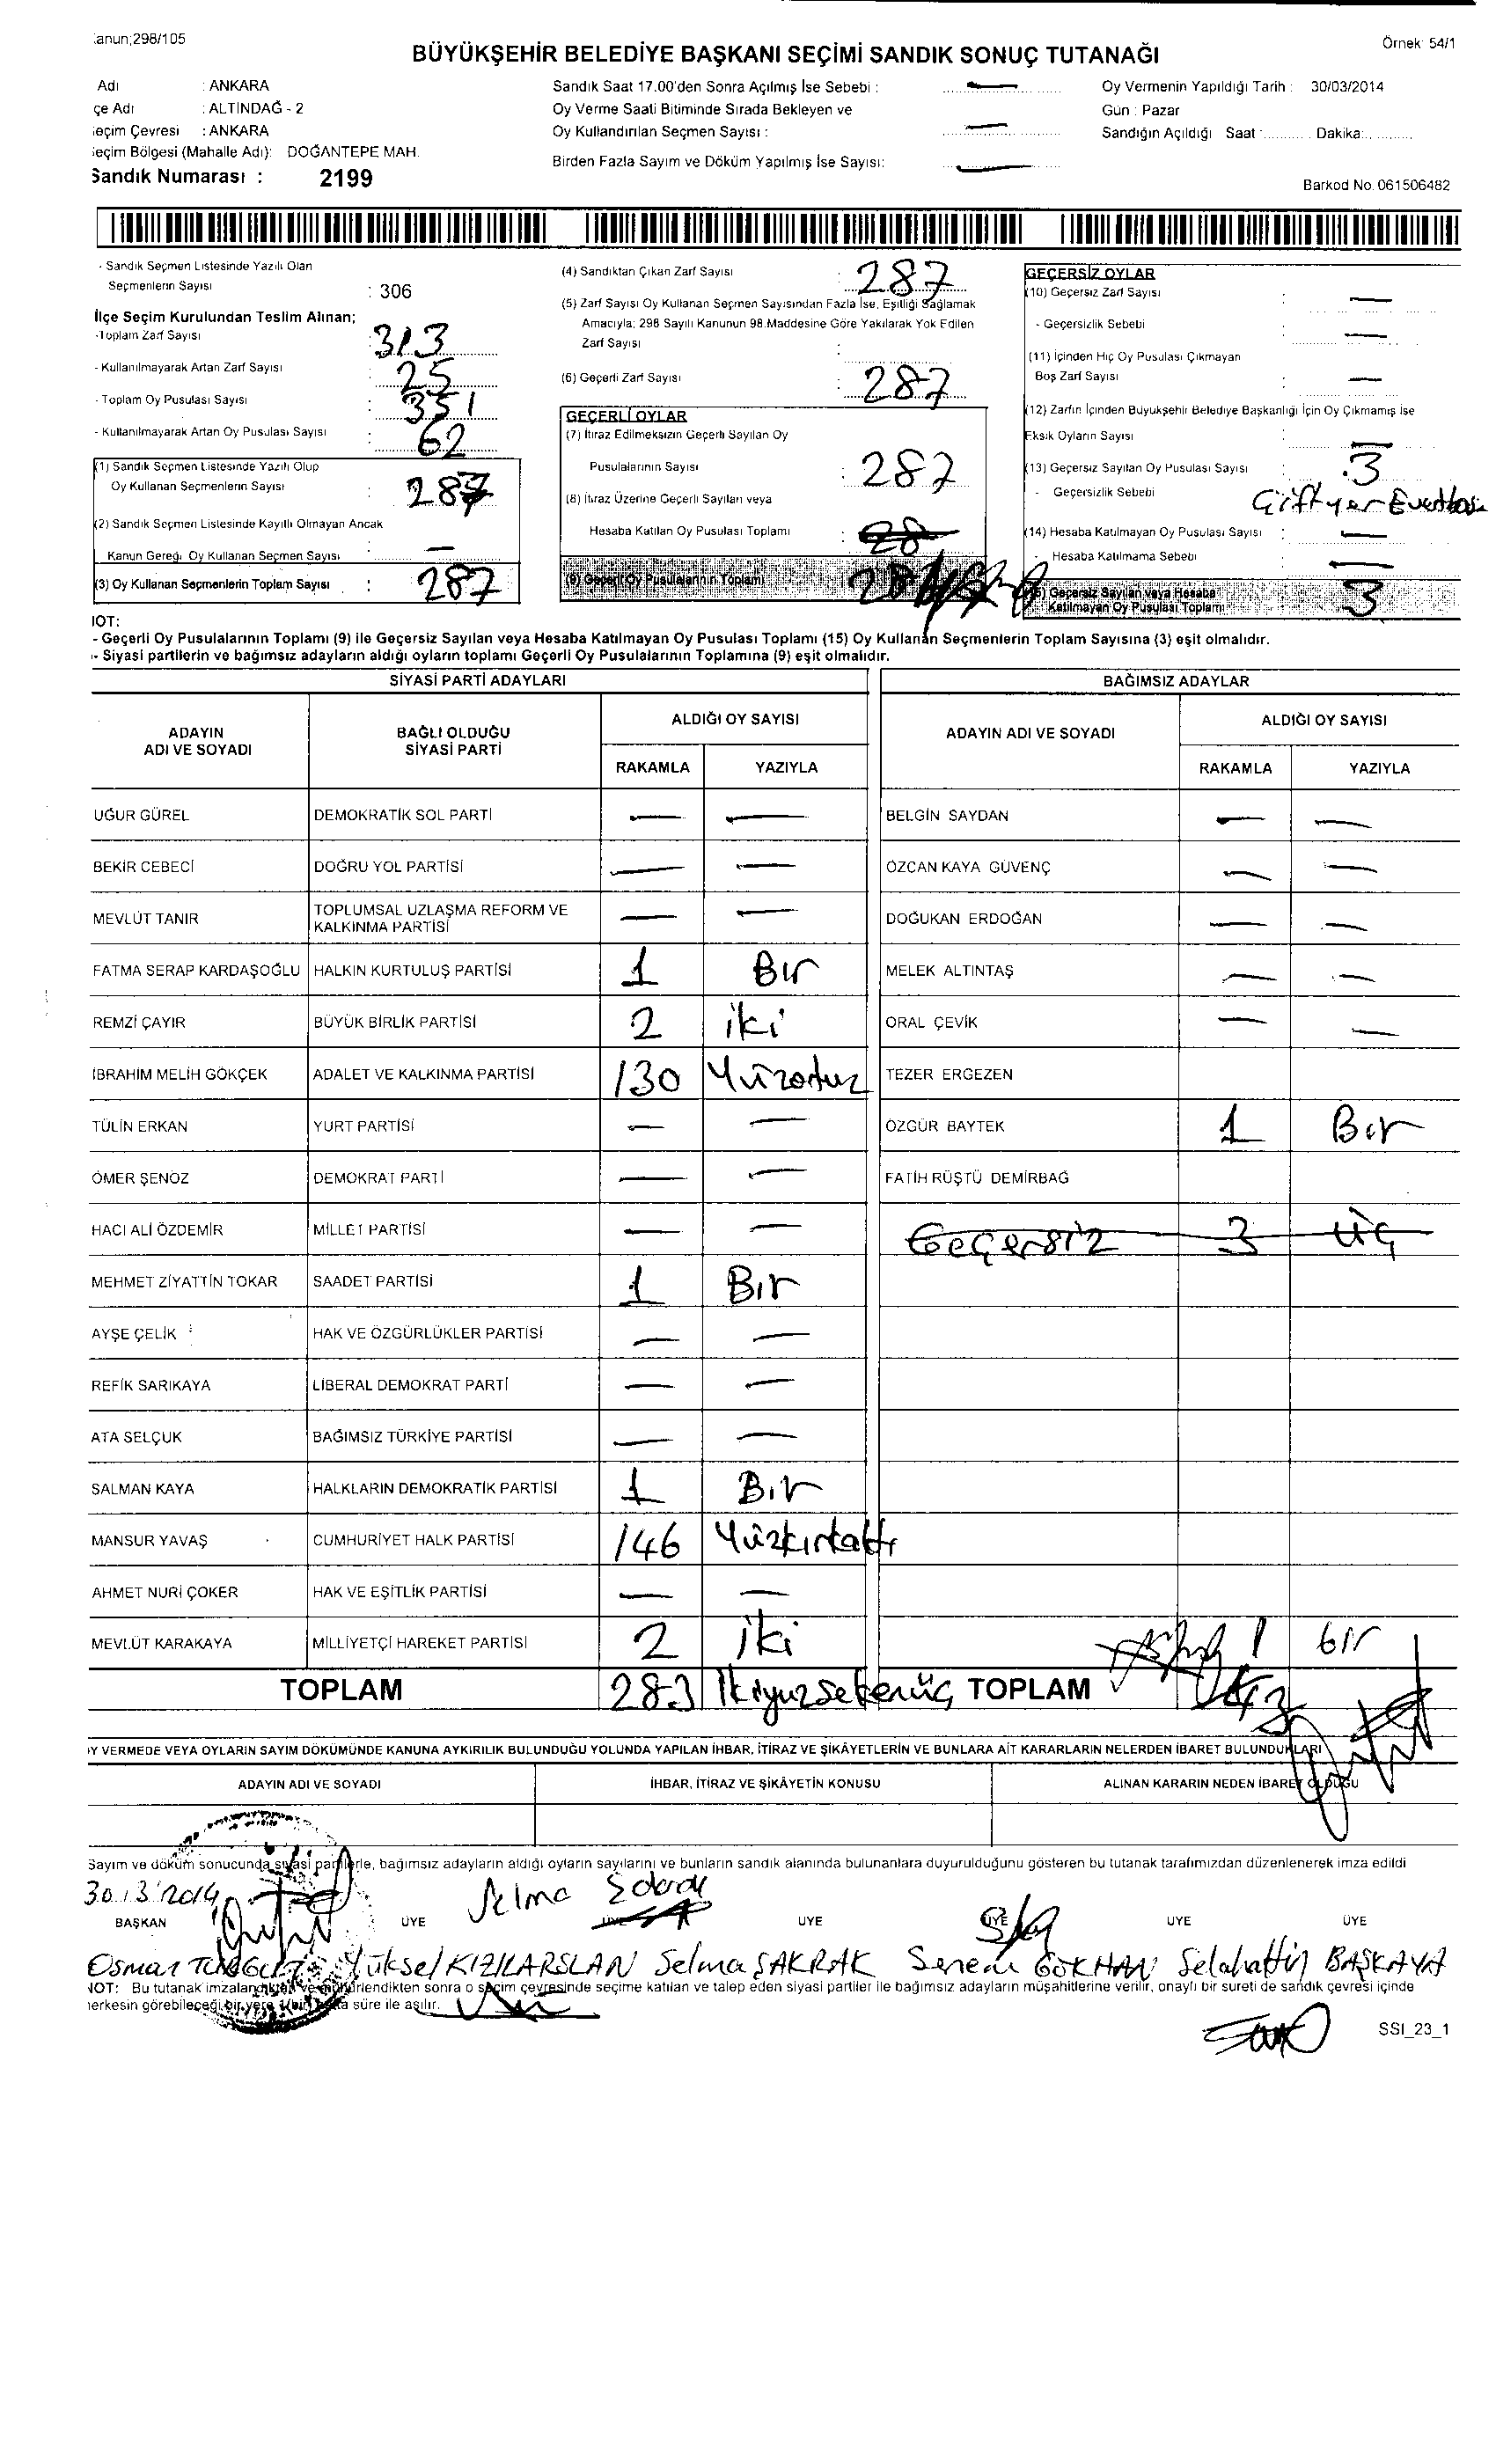 anun;298/105
Örnek: 54/1
BÜYÜKŞEHİR BELEDİYE BAŞKANI SEÇİMİ SANDIK SONUÇ TUTANAĞI
Adı : ANKARA
çe Adı : ALTINDAĞ - 2
eçim Çevresi : ANKARA
eçim Bölgesi (Mahalle Adı): DOĞANTEPE MAH.
Sandık Numarası : 2199
Sandık Saat 17.00'den Sonra Açılmış İse Sebebi : —
Oy Verme Saati Bitiminde Sırada Bekleyen ve
Oy Kullandırılan Seçmen Sayısı : —
Birden Fazla Sayım ve Döküm Yapılmış İse Sayısı: —
Oy Vermenin Yapıldığı Tarih : 30/03/2014
Gün : Pazar
Sandığın Açıldığı Saat :........... Dakika:...........
Barkod No. 061506482
- Sandık Seçmen Listesinde Yazılı Olan
Seçmenlerin Sayısı : 306
İlçe Seçim Kurulundan Teslim Alınan;
-Toplam Zarf Sayısı : 313
- Kullanılmayarak Artan Zarf Sayısı : 25
- Toplam Oy Pusulası Sayısı : 351
- Kullanılmayarak Artan Oy Pusulası Sayısı : 62
(1) Sandık Seçmen Listesinde Yazılı Olup
Oy Kullanan Seçmenlerin Sayısı : 287
(2) Sandık Seçmen Listesinde Kayıtlı Olmayan Ancak
Kanun Gereği Oy Kullanan Seçmen Sayısı : —
(3) Oy Kullanan Seçmenlerin Toplam Sayısı : 287
(4) Sandıktan Çıkan Zarf Sayısı : 287
(5) Zarf Sayısı Oy Kullanan Seçmen Sayısından Fazla İse, Eşitliği Sağlamak
Amacıyla; 298 Sayılı Kanunun 98.Maddesine Göre Yakılarak Yok Edilen
Zarf Sayısı :
(6) Geçerli Zarf Sayısı : 287
GEÇERLİ OYLAR
(7) İtiraz Edilmeksizin Geçerli Sayılan Oy
Pusulalarının Sayısı : 287
(8) İtiraz Üzerine Geçerli Sayılan veya
Hesaba Katılan Oy Pusulası Toplamı :
(9) Geçerli Oy Pusulalarının Toplamı 284
GEÇERSİZ OYLAR
(10) Geçersiz Zarf Sayısı : —
- Geçersizlik Sebebi : —
(11) İçinden Hiç Oy Pusulası Çıkmayan
Boş Zarf Sayısı : —
(12) Zarfın İçinden Büyükşehir Belediye Başkanlığı İçin Oy Çıkmamış ise
Eksik Oyların Sayısı : —
(13) Geçersiz Sayılan Oy Pusulası Sayısı : 3
- Geçersizlik Sebebi : Çift yer
(14) Hesaba Katılmayan Oy Pusulası Sayısı : —
- Hesaba Katılmama Sebebi : —
(15) Geçersiz Sayılan veya Hesaba
Katılmayan Oy Pusulası Toplamı 3
NOT:
- Geçerli Oy Pusulalarının Toplamı (9) ile Geçersiz Sayılan veya Hesaba Katılmayan Oy Pusulası Toplamı (15) Oy Kullanan Seçmenlerin Toplam Sayısına (3) eşit olmalıdır.
- Siyasi partilerin ve bağımsız adayların aldığı oyların toplamı Geçerli Oy Pusulalarının Toplamına (9) eşit olmalıdır.
SİYASİ PARTİ ADAYLARI
ADAYIN ADI VE SOYADI BAĞLI OLDUĞU SİYASİ PARTİ ALDIĞI OY SAYISI RAKAMLA YAZIYLA
UĞUR GÜREL DEMOKRATİK SOL PARTİ — —
BEKİR CEBECİ DOĞRU YOL PARTİSİ — —
MEVLÜT TANIR TOPLUMSAL UZLAŞMA REFORM VE KALKINMA PARTİSİ — —
FATMA SERAP KARDAŞOĞLU HALKIN KURTULUŞ PARTİSİ 1 Bir
REMZİ ÇAYIR BÜYÜK BİRLİK PARTİSİ 2 iki
İBRAHİM MELİH GÖKÇEK ADALET VE KALKINMA PARTİSİ 130 Yüzotuz
TÜLİN ERKAN YURT PARTİSİ — —
ÖMER ŞENÖZ DEMOKRAT PARTİ — —
HACI ALİ ÖZDEMİR MİLLET PARTİSİ — —
MEHMET ZİYATTİN TOKAR SAADET PARTİSİ 1 Bir
AYŞE ÇELİK HAK VE ÖZGÜRLÜKLER PARTİSİ — —
REFİK SARIKAYA LİBERAL DEMOKRAT PARTİ — —
ATA SELÇUK BAĞIMSIZ TÜRKİYE PARTİSİ — —
SALMAN KAYA HALKLARIN DEMOKRATİK PARTİSİ 1 Bir
MANSUR YAVAŞ CUMHURİYET HALK PARTİSİ 146 Yüzkırkaltı
AHMET NURİ ÇOKER HAK VE EŞİTLİK PARTİSİ — —
MEVLÜT KARAKAYA MİLLİYETÇİ HAREKET PARTİSİ 2 iki
TOPLAM 283 ikiyüzseksenüç
BAĞIMSIZ ADAYLAR
ADAYIN ADI VE SOYADI ALDIĞI OY SAYISI RAKAMLA YAZIYLA
BELGİN SAYDAN — —
ÖZCAN KAYA GÜVENÇ — —
DOĞUKAN ERDOĞAN — —
MELEK ALTINTAŞ — —
ORAL ÇEVİK — —
TEZER ERGEZEN
ÖZGÜR BAYTEK 1 Bir
FATİH RÜŞTÜ DEMİRBAĞ
Geçersiz 3 üç
TOPLAM 1 bir
Y VERMEDE VEYA OYLARIN SAYIM DÖKÜMÜNDE KANUNA AYKIRILIK BULUNDUĞU YOLUNDA YAPILAN İHBAR, İTİRAZ VE ŞİKÂYETLERİN VE BUNLARA AİT KARARLARIN NELERDEN İBARET BULUNDUKLARI
ADAYIN ADI VE SOYADI İHBAR, İTİRAZ VE ŞİKÂYETİN KONUSU ALINAN KARARIN NEDEN İBARET OLDUĞU
Sayım ve döküm sonucunda siyasi partilerle, bağımsız adayların aldığı oyların sayılarını ve bunların sandık alanında bulunanlara duyurulduğunu gösteren bu tutanak tarafımızdan düzenlenerek imza edildi
30.3.2014 Selma
BAŞKAN ÜYE ÜYE ÜYE ÜYE ÜYE ÜYE
Osman Yüksel KIZILARSLAN Selma ŞAKRAK Senem GÖKHAN Selahattin BAŞKAYA
NOT: Bu tutanak imzalandıktan ve mühürlendikten sonra o seçim çevresinde seçime katılan ve talep eden siyasi partiler ile bağımsız adayların müşahitlerine verilir, onaylı bir sureti de sandık çevresi içinde
herkesin görebileceği bir yere 1(bir) hafta süre ile asılır.
SSI_23_1